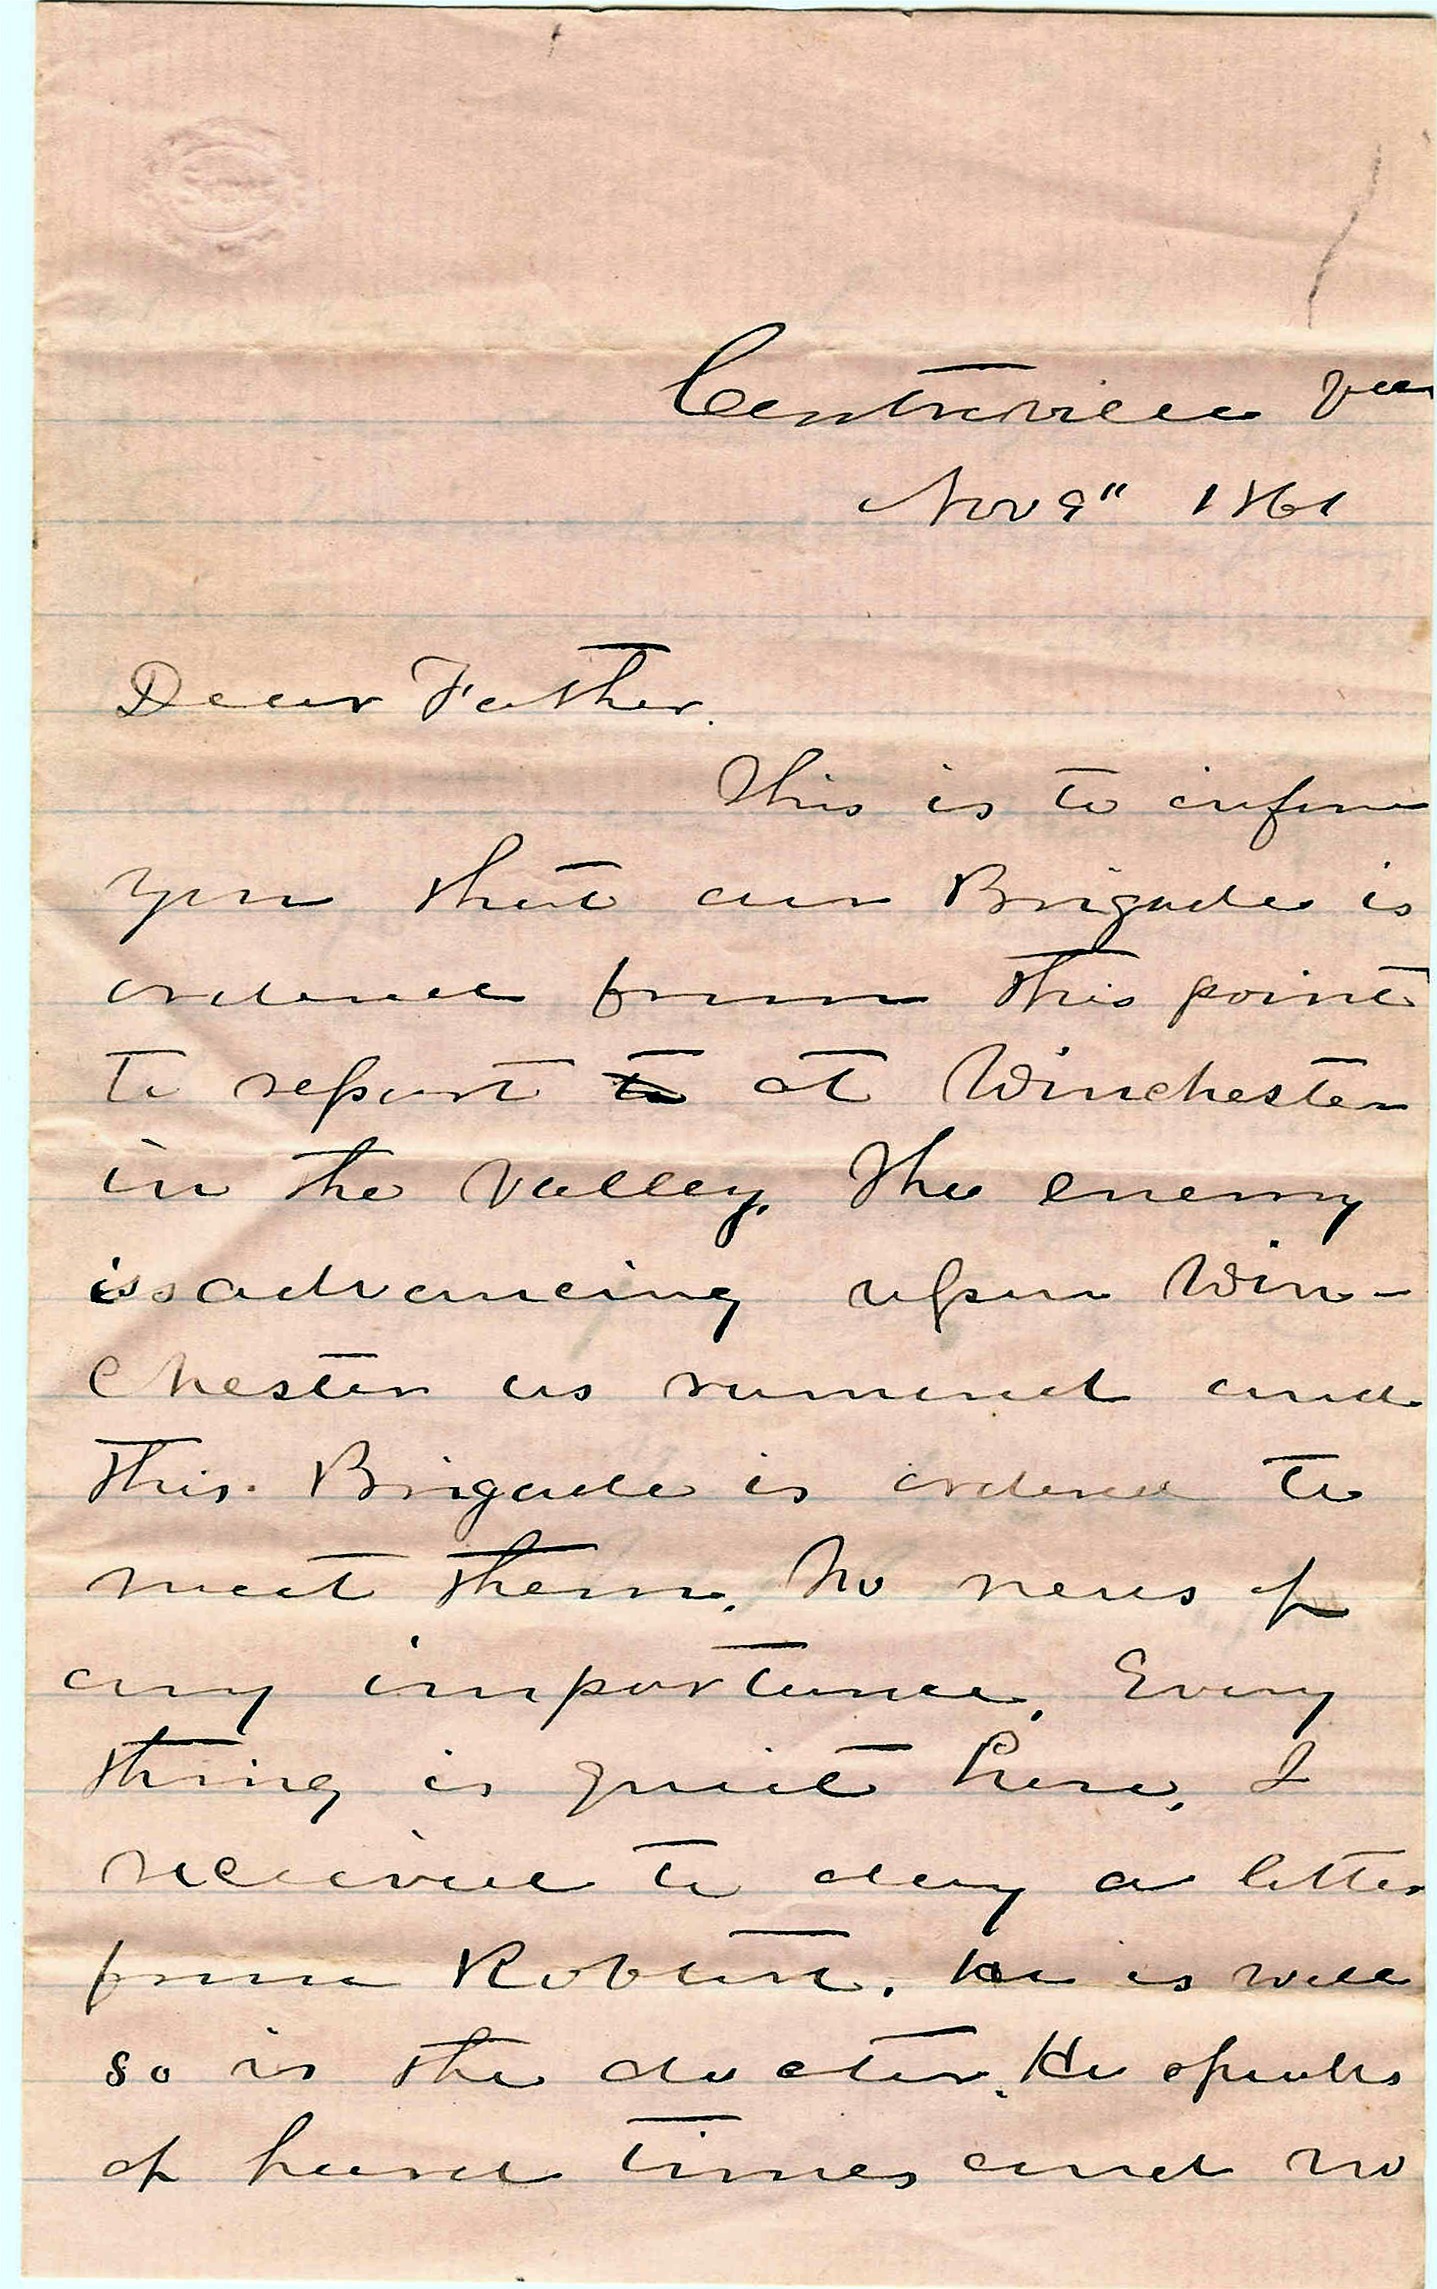 Centreville Va
Nov 9" 1861
Dear Father.
This is to inform
you that our Brigade is
ordered from this point
to report to at Winchester
in the valley. The enemy
is advancing upon Win-
chester as rumored and
this Brigade is ordered to
meet them. No news of
any importance. Every
thing is quiet here. I
received to day a letter
from Robert. He is well
so is the doctor. He speaks
of hard times and no